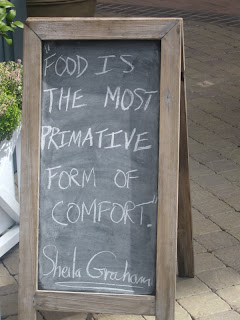 "FOOD IS
THE MOST
PRIMATIVE
FORM OF
COMFORT."
Sheila Graham